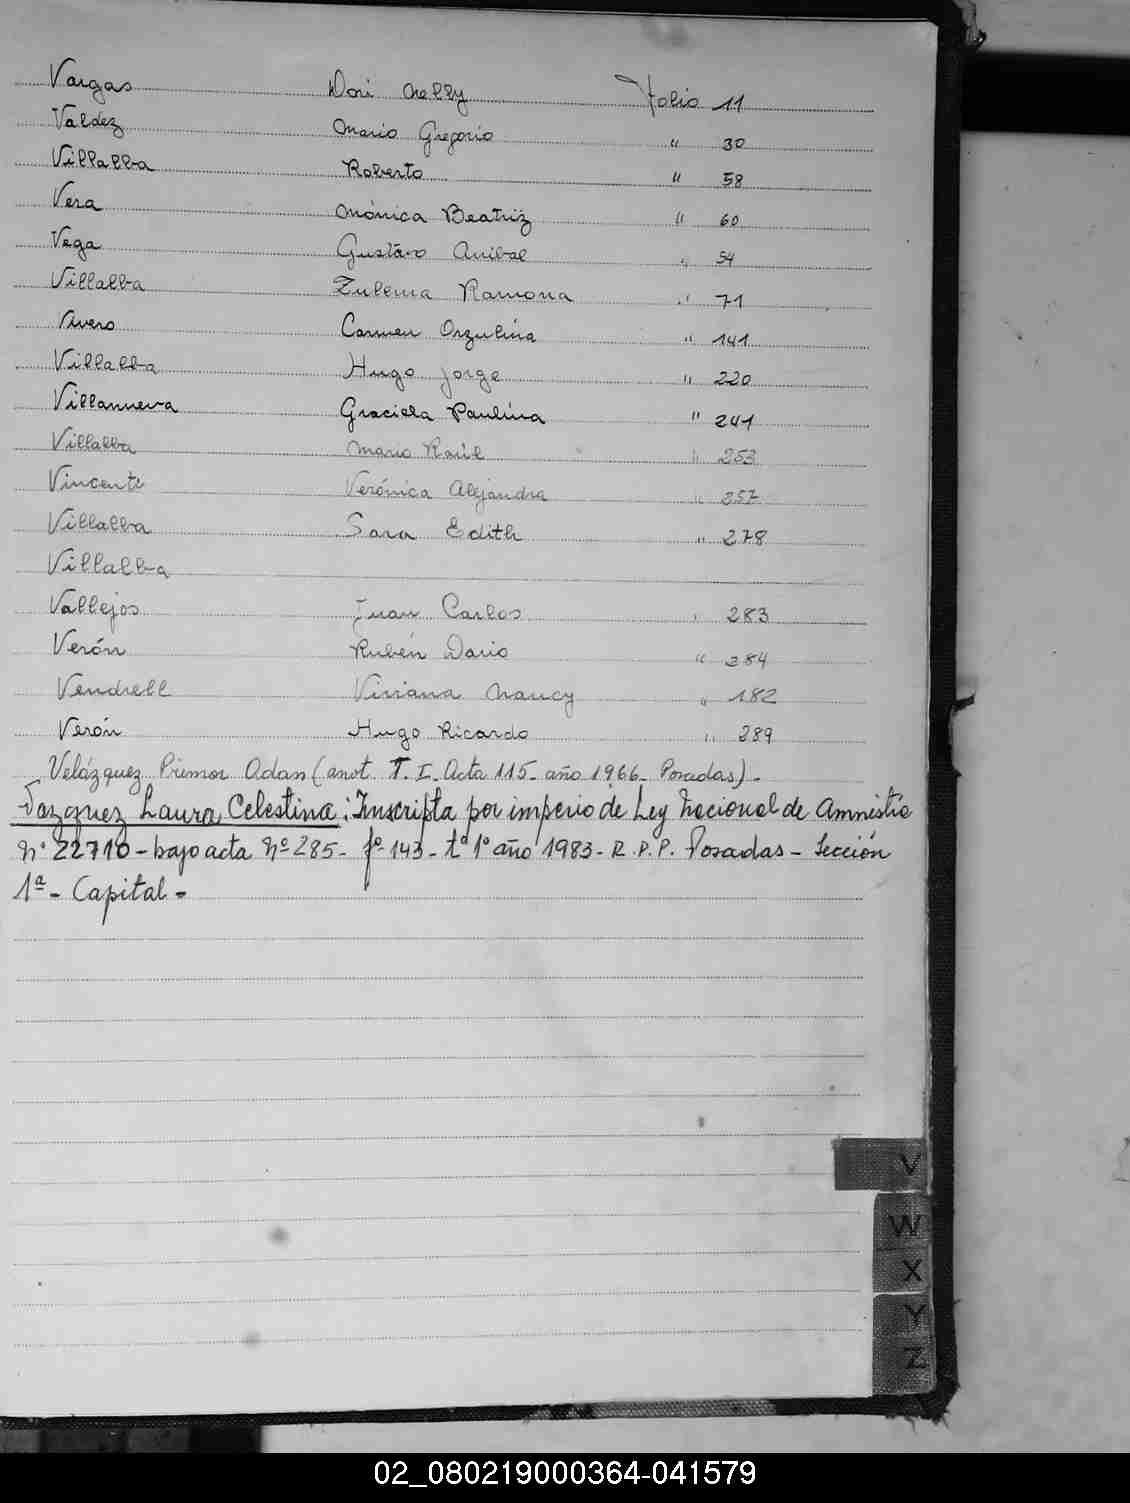 Vargas Dori Nelly Folio 11
Valdez Mario Gregorio " 30
Villalba Roberto " 58
Vera Mónica Beatriz " 60
Vega Gustavo Anibal " 54
Villalba Zulema Ramona " 71
Vivero Carmen Orzulina " 141
Villalba Hugo Jorge " 220
Villanueva Graciela Paulina " 241
Villalba Mario Raúl " 253
Vincenti Verónica Alejandra " 257
Villalba Sara Edith " 278
Villalba
Vallejos Juan Carlos " 283
Verón Rubén Dario " 284
Vendrell Viviana Nancy " 182
Verón Hugo Ricardo " 289
Velázquez Adan (anot. T. I. Acta 115 - año 1966 - Posadas) -
Vazquez Laura Celestina: Inscripta por imperio de Ley Nacional de Amnistia
Nº 22710 - bajo acta Nº 285 - fº 143 - tº 1º año 1983 - R.P.P. Posadas - Sección
1ª - Capital -
V
W
X
Y
Z
02_080219000364-041579